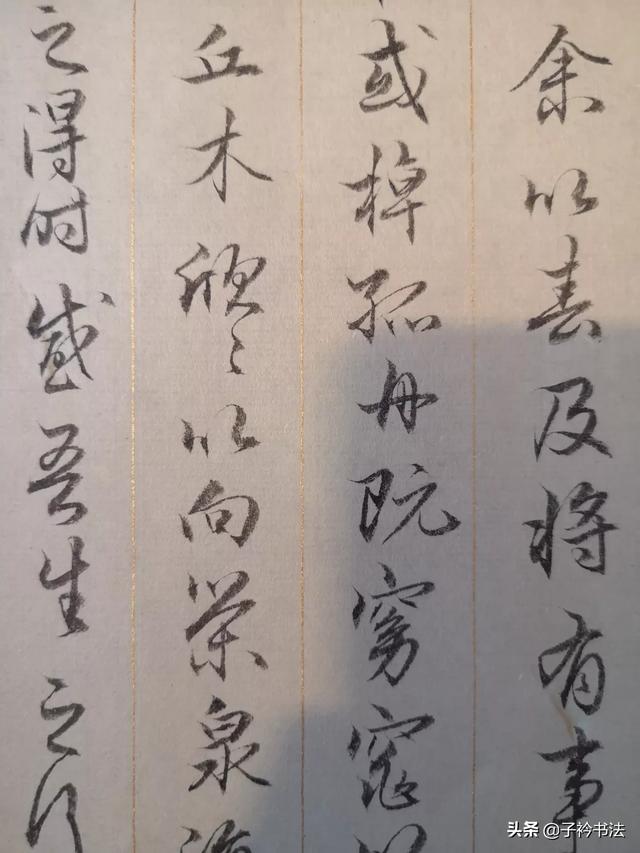 余以春及将有事
或棹孤舟既窈窕以
丘木欣々以向荣泉
之得时感吾生之行
头条@子衿书法